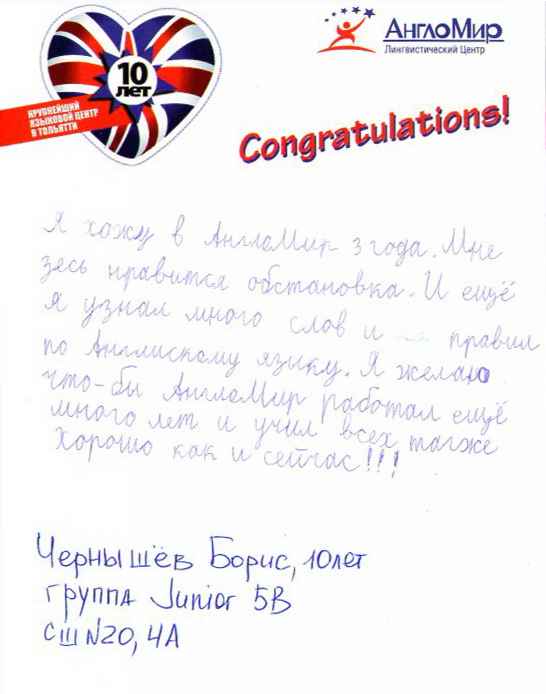 10
ЛЕТ
КРУПНЕЙШИЙ
ЯЗЫКОВОЙ ЦЕНТР
В ТОЛЬЯТТИ
АнглоМир
Лингвистический Центр
Congratulations!
Я хожу в АнглоМир 3 года. Мне
зесь нравится обстановка. И ещё
я узнал много слов и правил
по Англискому языку. Я желаю
что-бы АнглоМир работал ещё
много лет и учил всех тагже
хорошо как и сейчас!!!
Чернышёв Борис, 10 лет
группа Junior 5B
сш N20, 4А